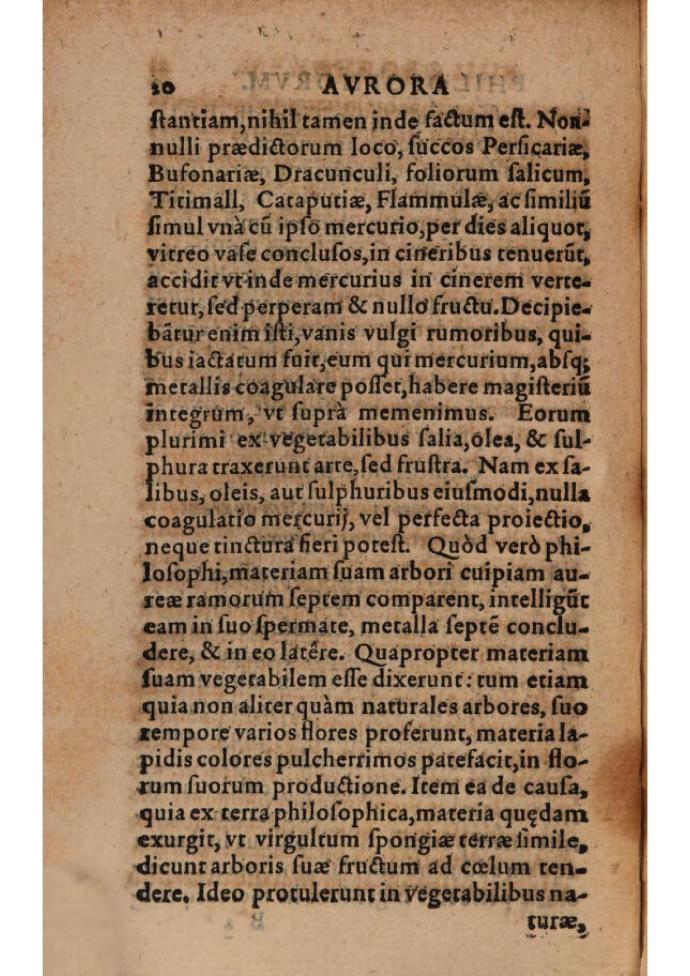 20 AVRORA
ſtantiam,nihil tamen inde factum eſt. Non-
nulli prædictorum loco, ſuccos Perſicariæ,
Bufonariæ, Dracunculi, foliorum ſalicum,
Titimall, Cataputiæ, Flammulæ, ac ſimiliū
ſimul vnà cū ipſo mercurio,per dies aliquot,
vitreo vaſe concluſos,in cineribus tenuerūt,
accidit vt inde mercurius in cinerem verte-
retur, ſed perperam & nullo fructu.Decipie-
bātur enim iſti,vanis vulgi rumoribus, qui-
bus iactatum fuit,eum qui mercurium,abſq;
metallis coagulare poſſet,habere magiſteriū
integrum, vt ſuprà memenimus. Eorum
plurimi ex vegetabilibus ſalia,olea, & ſul-
phura traxerunt arte,ſed fruſtra. Nam ex ſa-
libus, oleis, aut ſulphuribus eiuſmodi,nulla
coagulatio mercurij, vel perfecta proiectio,
neque tinctura fieri poteſt. Quòd verò phi-
loſophi,materiam ſuam arbori cuipiam au-
reæ ramorum ſeptem comparent, intelligūt
eam in ſuo ſpermate, metalla ſeptē conclu-
dere, & in eo latêre. Quapropter materiam
ſuam vegetabilem eſſe dixerunt: tum etiam
quia non aliter quàm naturales arbores, ſuo
tempore varios flores proferunt, materia la-
pidis colores pulcherrimos patefacit,in flo-
rum ſuorum productione. Item ea de cauſa,
quia ex terra philoſophica,materia quędam
exurgit, vt virgultum ſpongiæ terræ ſimile,
dicunt arboris ſuæ fructum ad cœlum ten-
dere. Ideo protulerunt in vegetabilibus na-
turæ,